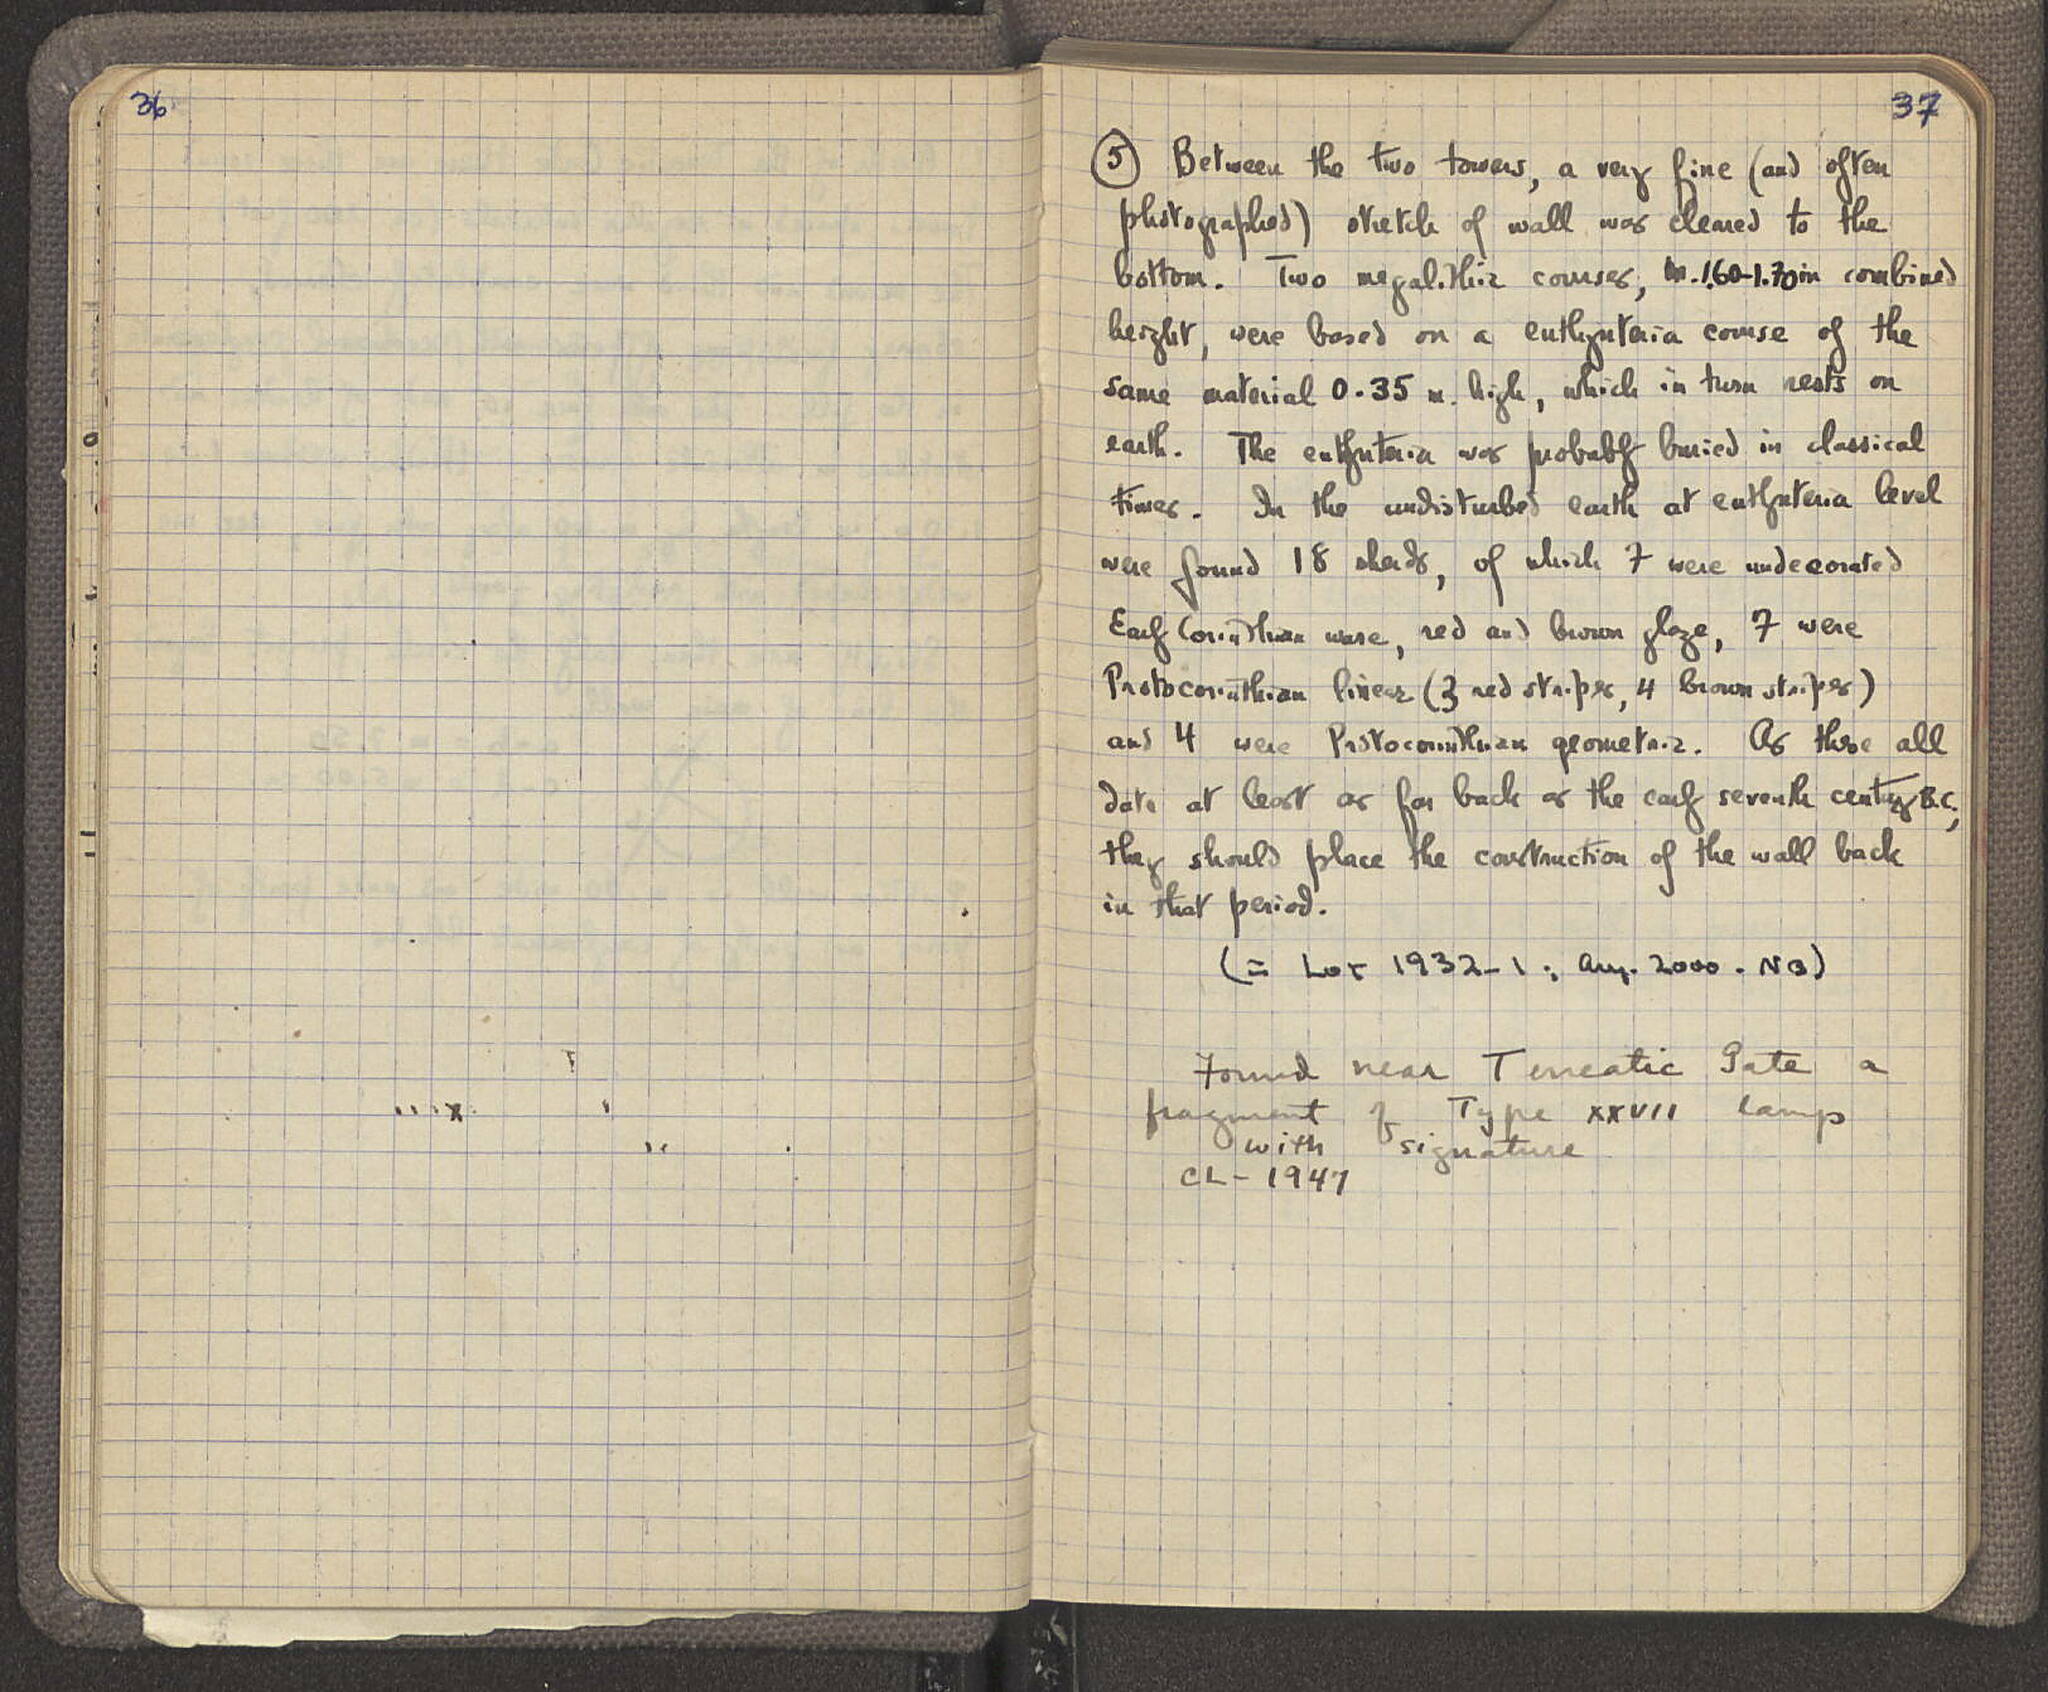 36
37
⑤ Between the two towers, a very fine (and often
photographed) stretch of wall was cleared to the
bottom. Two megalithic courses, m. 1.60-1.70 in combined
height, were based on a euthynteria course of the
same material 0.35 m. high, which in turn rests on
earth. The euthynteria was probably buried in classical
times. In the undisturbed earth at euthynteria level
were found 18 sherds, of which 7 were undecorated
Early Corinthian ware, red and brown glaze, 7 were
Protocorinthian linear (3 red stripes, 4 brown stripes)
and 4 were Protocorinthian geometric. As these all
date at least as far back as the early seventh century B.C.,
they should place the construction of the wall back
in that period.
(= Lot 1932-1; Aug. 2000. NB)
Found near Teneatic Gate a
fragment of Type XXVII lamp
with signature
CL-1947